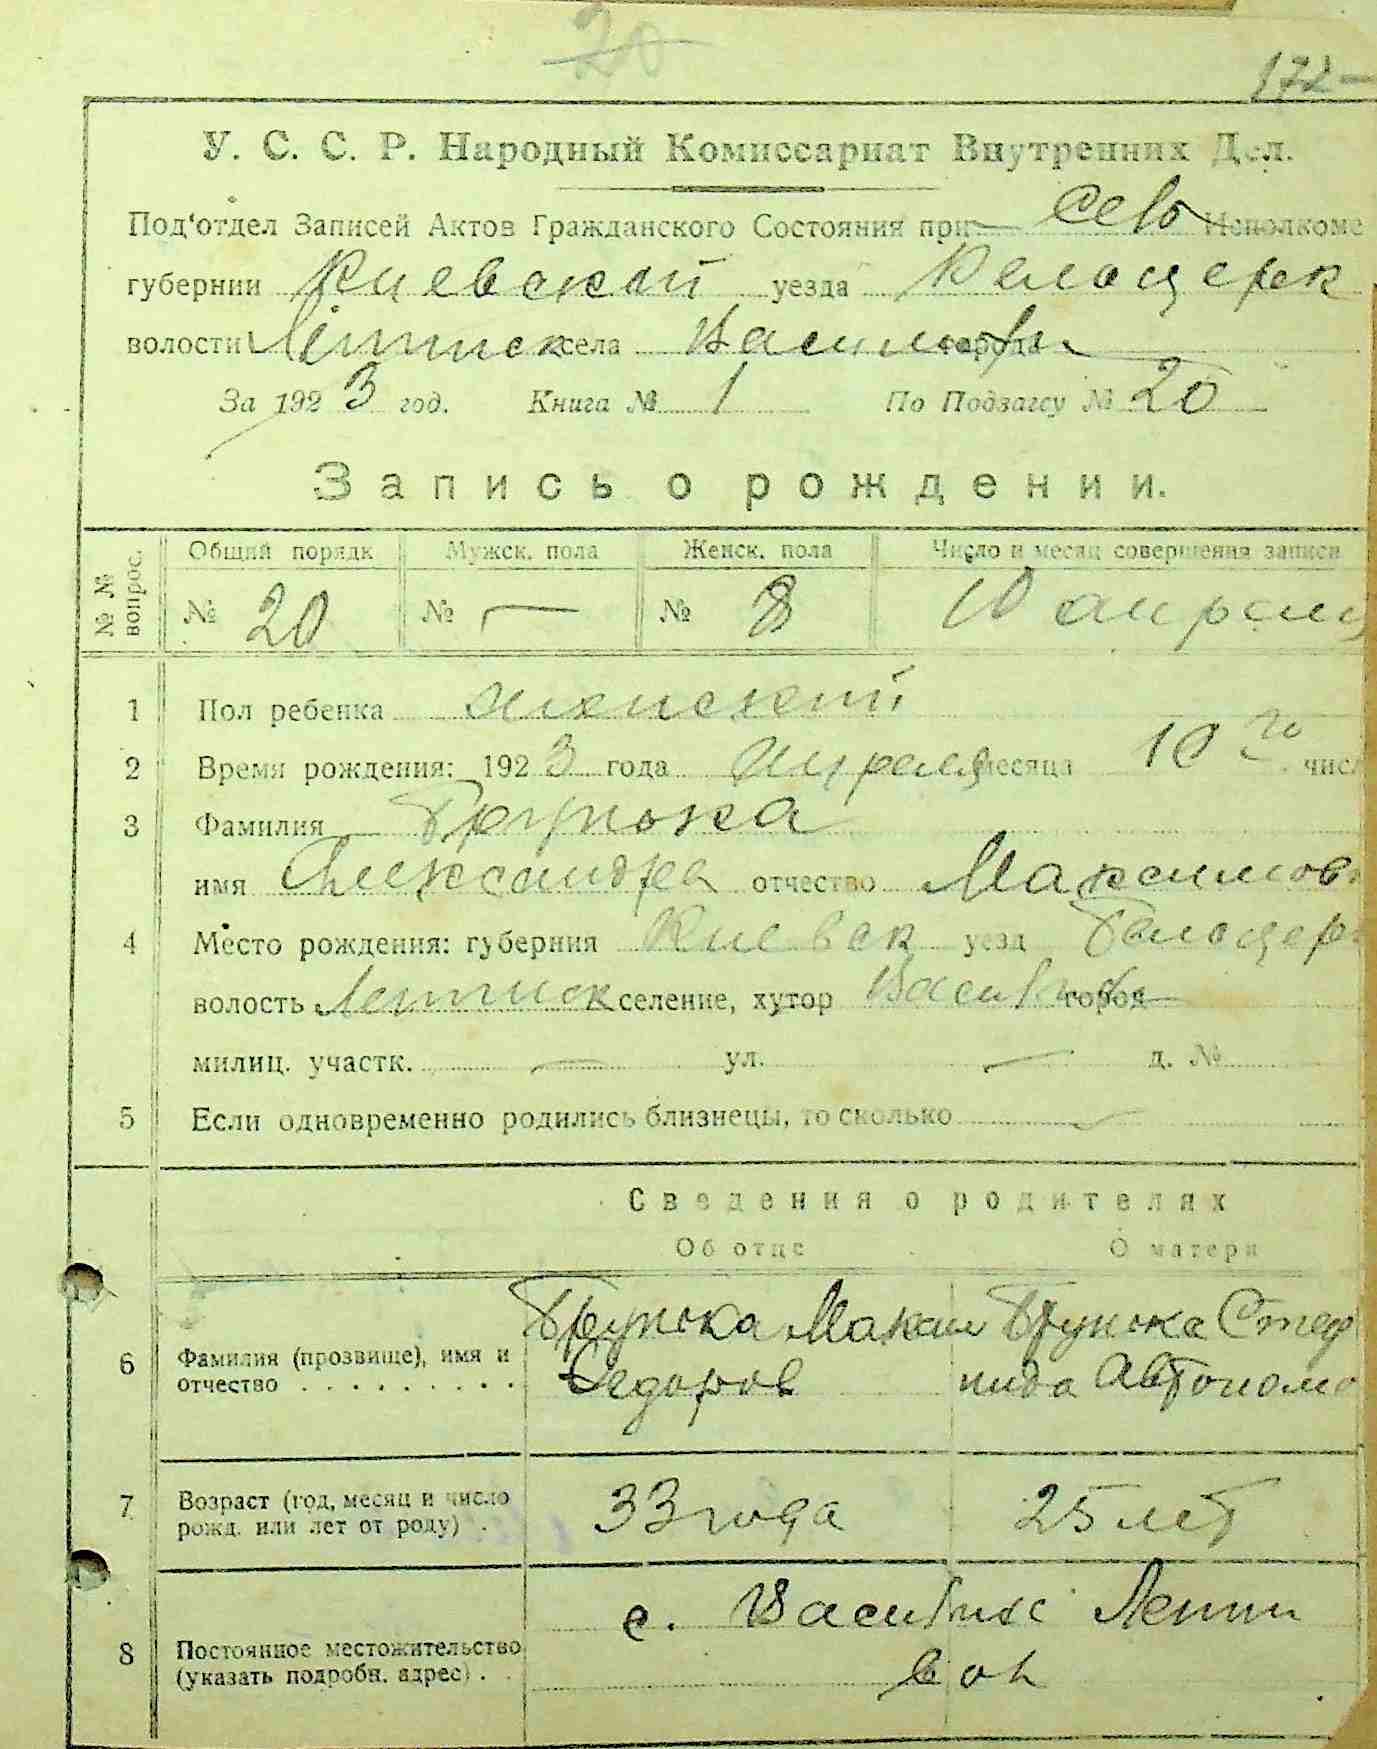 20
172
У. С. С. Р. Народный Комиссариат Внутренних Дел.
Под‘отдел Записей Актов Гражданского Состояния при Село Исполкоме
губернии Киевской уезда Белоцерк
волости села города
За 1923 год. Книга № 1 По Подзагсу № 20
Запись о рождении.
№ № вопрос. Общий порядк Мужск. пола Женск. пола Число и месяц совершения записи
№ 20 № — № 8 10 апреля
1 Пол ребенка женский
2 Время рождения: 1923 года Апреля месяца 10 го числ
3 Фамилия
имя Александра отчество Максимов
4 Место рождения: губерния Киевск уезд Белоцер
волость селение, хутор город
милиц. участк. — ул. — д. №
5 Если одновременно родились близнецы, то сколько
Сведения о родителях
Об отце О матери
6 Фамилия (прозвище), имя и
отчество . . . . . . . . .
Максим
Федоров Автономо
7 Возраст (год, месяц и число
рожд. или лет от роду) .
33 года 25 лет
8 Постоянное местожительство
(указать подробн. адрес) . .
с.
вол